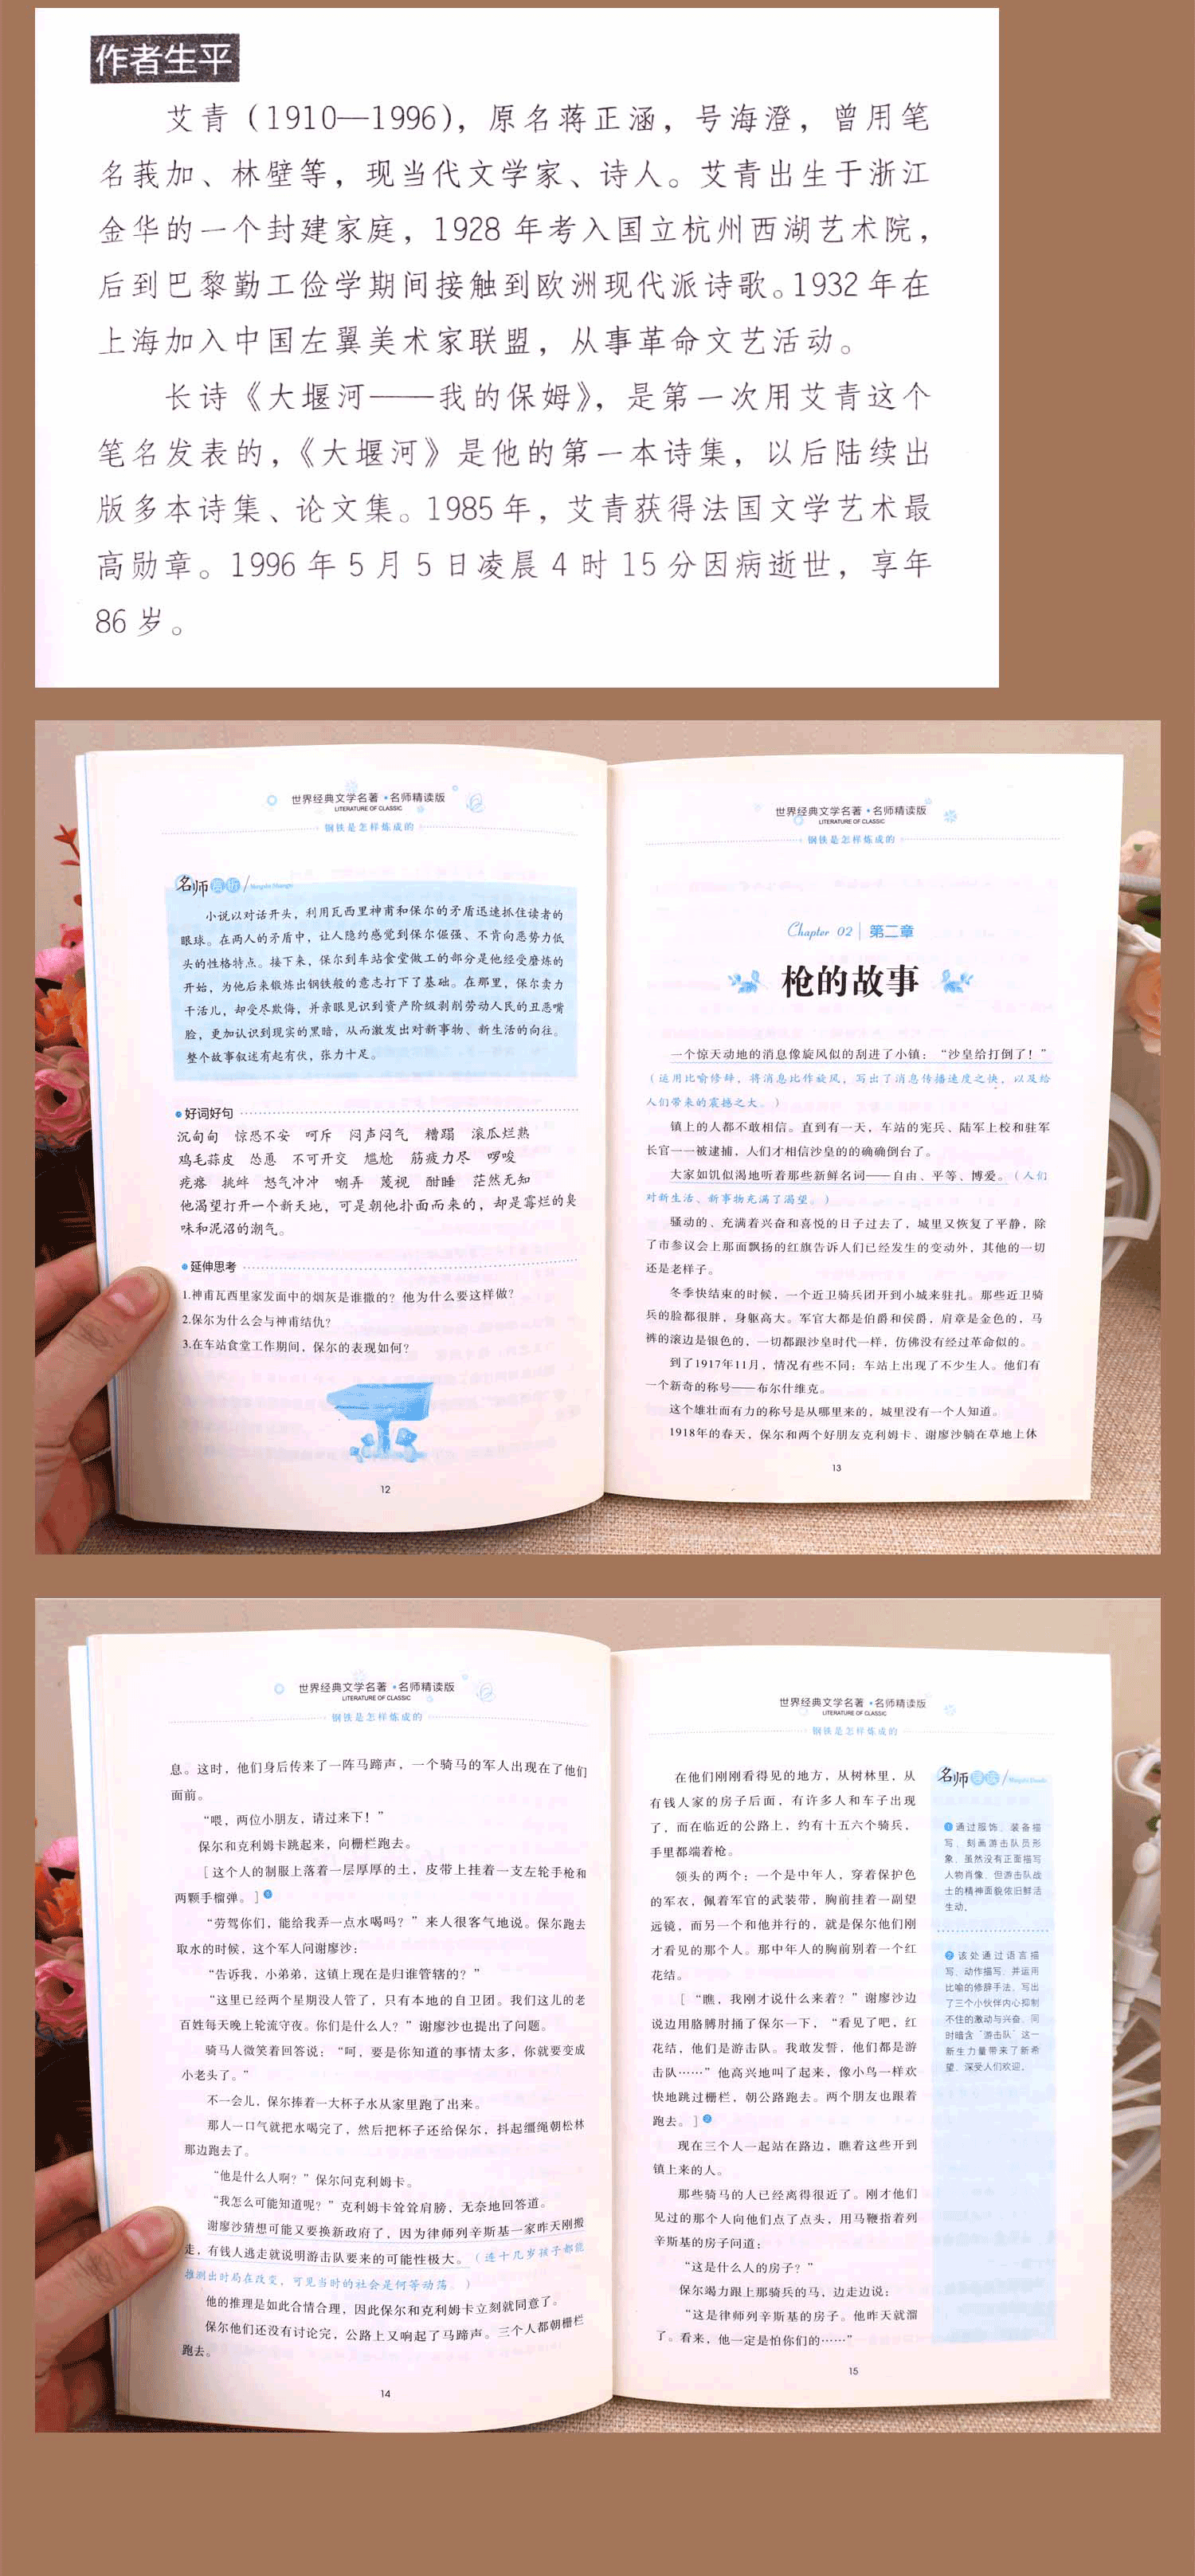 作者生平
艾青（1910—1996），原名蒋正涵，号海澄，曾用笔
名莪加、林壁等，现当代文学家、诗人。艾青出生于浙江
金华的一个封建家庭，1928 年考入国立杭州西湖艺术院，
后到巴黎勤工俭学期间接触到欧洲现代派诗歌。1932 年在
上海加入中国左翼美术家联盟，从事革命文艺活动。
长诗《大堰河——我的保姆》，是第一次用艾青这个
笔名发表的，《大堰河》是他的第一本诗集，以后陆续出
版多本诗集、论文集。1985 年，艾青获得法国文学艺术最
高勋章。1996 年 5 月 5 日凌晨 4 时 15 分因病逝世，享年
86 岁。
世界经典文学名著•名师精读版
LITERATURE OF CLASSIC
钢铁是怎样炼成的
名师赏析
小说以对话开头，利用瓦西里神甫和保尔的矛盾迅速抓住读者的
眼球。在两人的矛盾中，让人隐约感觉到保尔倔强、不肯向恶势力低
头的性格特点。接下来，保尔到车站食堂做工的部分是他经受磨炼的
开始，为他后来锻炼出钢铁般的意志打下了基础。在那里，保尔卖力
干活儿，却受尽欺侮，并亲眼见识到资产阶级剥削劳动人民的丑恶嘴
脸，更加认识到现实的黑暗，从而激发出对新事物、新生活的向往。
整个故事叙述有起有伏，张力十足。
●好词好句
沉甸甸 惊恐不安 呵斥 闷声闷气 糟蹋 滚瓜烂熟
鸡毛蒜皮 怂恿 不可开交 尴尬 筋疲力尽 啰唆
疙瘩 挑衅 怒气冲冲 嘲弄 蔑视 酣睡 茫然无知
他渴望打开一个新天地，可是朝他扑面而来的，却是霉烂的臭
味和泥沼的潮气。
●延伸思考
1.神甫瓦西里家发面中的烟灰是谁撒的？他为什么要这样做？
2.保尔为什么会与神甫结仇？
3.在车站食堂工作期间，保尔的表现如何？
12
世界经典文学名著•名师精读版
LITERATURE OF CLASSIC
钢铁是怎样炼成的
Chapter 02 | 第二章
枪的故事
一个惊天动地的消息像旋风似的刮进了小镇：“沙皇给打倒了！”
（运用比喻修辞，将消息比作旋风，写出了消息传播速度之快，以及给
人们带来的震撼之大。）
镇上的人都不敢相信。直到有一天，车站的宪兵、陆军上校和驻军
长官一一被逮捕，人们才相信沙皇的的确确倒台了。
大家如饥似渴地听着那些新鲜名词——自由、平等、博爱。（人们
对新生活、新事物充满了渴望。）
骚动的、充满着兴奋和喜悦的日子过去了，城里又恢复了平静，除
了市参议会上那面飘扬的红旗告诉人们已经发生的变动外，其他的一切
还是老样子。
冬季快结束的时候，一个近卫骑兵团开到小城来驻扎。那些近卫骑
兵的脸都很胖，身躯高大。军官大都是伯爵和侯爵，肩章是金色的，马
裤的滚边是银色的，一切都跟沙皇时代一样，仿佛没有经过革命似的。
到了1917年11月，情况有些不同：车站上出现了不少生人。他们有
一个新奇的称号——布尔什维克。
这个雄壮而有力的称号是从哪里来的，城里没有一个人知道。
1918年的春天，保尔和两个好朋友克利姆卡、谢廖沙躺在草地上休
13
世界经典文学名著•名师精读版
LITERATURE OF CLASSIC
钢铁是怎样炼成的
息。这时，他们身后传来了一阵马蹄声，一个骑马的军人出现在了他们
面前。
“喂，两位小朋友，请过来下！”
保尔和克利姆卡跳起来，向栅栏跑去。
［这个人的制服上落着一层厚厚的土，皮带上挂着一支左轮手枪和
两颗手榴弹。］❶
“劳驾你们，能给我弄一点水喝吗？”来人很客气地说。保尔跑去
取水的时候，这个军人问谢廖沙：
“告诉我，小弟弟，这镇上现在是归谁管辖的？”
“这里已经两个星期没人管了，只有本地的自卫团。我们这儿的老
百姓每天晚上轮流守夜。你们是什么人？”谢廖沙也提出了问题。
骑马人微笑着回答说：“呵，要是你知道的事情太多，你就要变成
小老头了。”
不一会儿，保尔捧着一大杯子水从家里跑了出来。
那人一口气就把水喝完了，然后把杯子还给保尔，抖起缰绳朝松林
那边跑去了。
“他是什么人啊？”保尔问克利姆卡。
“我怎么可能知道呢？”克利姆卡耸耸肩膀，无奈地回答道。
谢廖沙猜想可能又要换新政府了，因为律师列辛斯基一家昨天刚搬
走，有钱人逃走就说明游击队要来的可能性极大。（连十几岁孩子都能
推测出时局在改变，可见当时的社会是何等动荡。）
他的推理是如此合情合理，因此保尔和克利姆卡立刻就同意了。
保尔他们还没有讨论完，公路上又响起了马蹄声。三个人都朝栅栏
跑去。
14
世界经典文学名著•名师精读版
LITERATURE OF CLASSIC
钢铁是怎样炼成的
在他们刚刚看得见的地方，从树林里，从
有钱人家的房子后面，有许多人和车子出现
了，而在临近的公路上，约有十五六个骑兵，
手里都端着枪。
领头的两个：一个是中年人，穿着保护色
的军衣，佩着军官的武装带，胸前挂着一副望
远镜，而另一个和他并行的，就是保尔他们刚
才看见的那个人。那中年人的胸前别着一个红
花结。
［“瞧，我刚才说什么来着？”谢廖沙边
说边用胳膊肘捅了保尔一下，“看见了吧，红
花结，他们是游击队。我敢发誓，他们都是游
击队……”他高兴地叫了起来，像小鸟一样欢
快地跳过栅栏，朝公路跑去。两个朋友也跟着
跑去。］❷
现在三个人一起站在路边，瞧着这些开到
镇上来的人。
那些骑马的人已经离得很近了。刚才他们
见过的那个人向他们点了点头，用马鞭指着列
辛斯基的房子问道：
“这是什么人的房子？”
保尔竭力跟上那骑兵的马，边走边说：
“这是律师列辛斯基的房子。他昨天就溜
了。看来，他一定是怕你们的……”
名师导读
❶通过服饰、装备描
写，刻画游击队员形
象，虽然没有正面描写
人物肖像，但游击队战
士的精神面貌依旧鲜活
生动。
❷该处通过语言描
写、动作描写，并运用
比喻的修辞手法，写出
了三个小伙伴内心抑制
不住的激动与兴奋，同
时暗含“游击队”这一
新生力量带来了新希
望，深受人们欢迎。
15